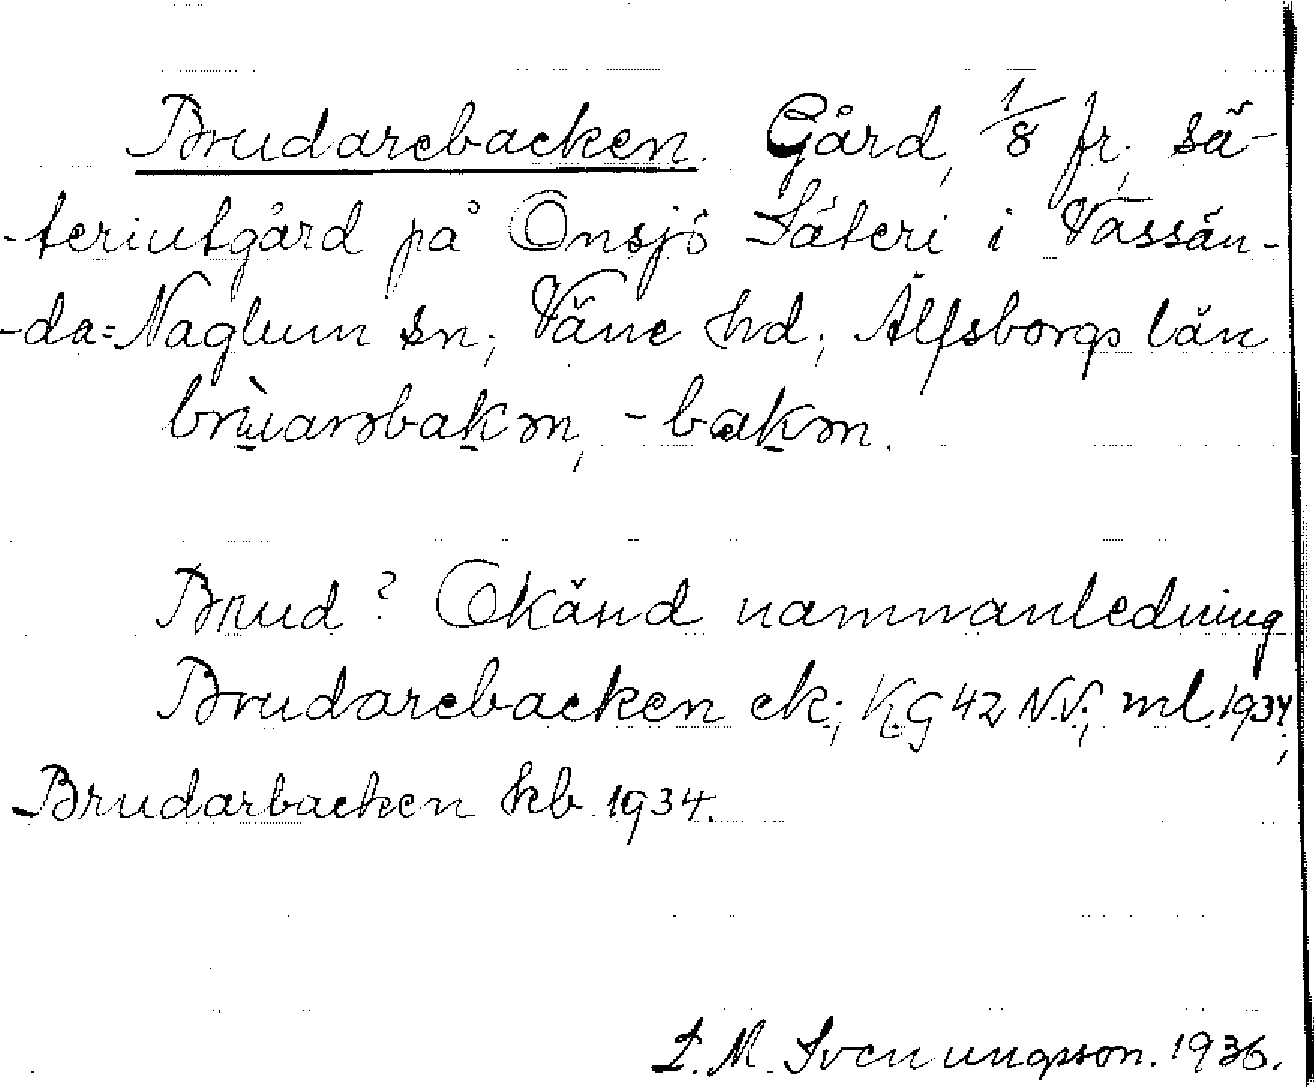 Brudarebacken. Gård, 1/8 fr, sä-
-teriutgård på Onsjö Säteri i Vassän-
-da=Naglum sn; Väne hd; Älfsborgs län
brùarəbakən, -bakən.
Brud? Okänd namnanledning
Brudarebacken ek; KG 42 N.V; ml 1934;
Brudarbacken kb 1934.
L. M. Svenungsson. 1936.